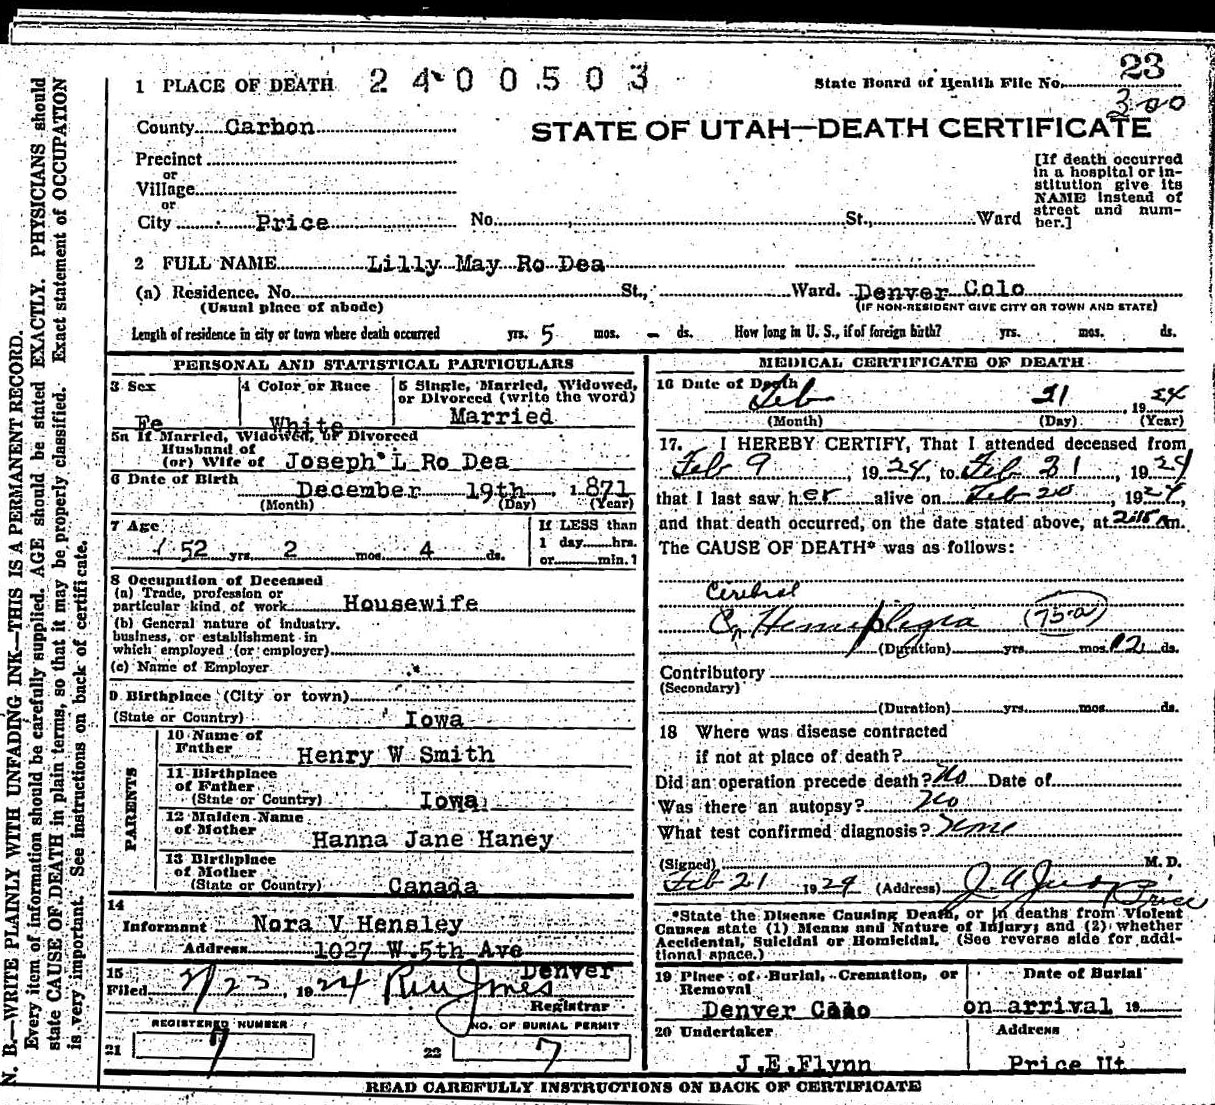 1 PLACE OF DEATH 2400503
State Board of Health File No. 23
300
County Carbon
STATE OF UTAH—DEATH CERTIFICATE
Precinct
or
Village
or
City Price No. St., Ward
[If death occurred
in a hospital or in-
stitution give its
NAME instead of
street and num-
ber.]
2 FULL NAME Lilly May Ro Dea
(a) Residence. No. St., Ward. Denver Colo
(Usual place of abode) (IF NON-RESIDENT GIVE CITY OR TOWN AND STATE)
Length of residence in city or town where death occurred yrs. 5 mos. – ds. How long in U. S., if of foreign birth? yrs. mos. ds.
PERSONAL AND STATISTICAL PARTICULARS
3 Sex 4 Color or Race 5 Single, Married, Widowed,
or Divorced (write the word)
Fe White Married
5a If Married, Widowed, or Divorced
Husband of
(or) Wife of Joseph L Ro Dea
6 Date of Birth
December 19th 1871
(Month) (Day) (Year)
7 Age If LESS than
1 day hrs.
52 yrs. 2 mos. 4 ds. or min.?
8 Occupation of Deceased
(a) Trade, profession or
particular kind of work Housewife
(b) General nature of industry,
business, or establishment in
which employed (or employer)
(c) Name of Employer
9 Birthplace (City or town)
(State or Country) Iowa
PARENTS
10 Name of
Father Henry W Smith
11 Birthplace
of Father
(State or Country) Iowa
12 Maiden Name
of Mother Hanna Jane Haney
13 Birthplace
of Mother
(State or Country) Canada
14
Informant Nora V Hensley
Address 1027 W 5th Ave
Denver
15
Filed 2/23, 1924
Registrar
REGISTERED NUMBER NO. OF BURIAL PERMIT
21 7 22 7
MEDICAL CERTIFICATE OF DEATH
16 Date of Death
Feb 21, 1924
(Month) (Day) (Year)
17. I HEREBY CERTIFY, That I attended deceased from
Feb 9, 1924, to Feb 21, 1924
that I last saw her alive on Feb 20, 1924,
and that death occurred, on the date stated above, at 2:15 Am.
The CAUSE OF DEATH* was as follows:
Cerebral
Hemiplegia (75-a)
(Duration) yrs. mos. 12 ds.
Contributory
(Secondary)
(Duration) yrs. mos. ds.
18 Where was disease contracted
if not at place of death?
Did an operation precede death? No Date of
Was there an autopsy? No
What test confirmed diagnosis? None
(Signed) M. D.
Feb 21 1924 (Address) Price
*State the Disease Causing Death, or in deaths from Violent
Causes state (1) Means and Nature of Injury; and (2) whether
Accidental, Suicidal or Homicidal. (See reverse side for addi-
tional space.)
19 Place of Burial, Cremation, or Date of Burial
Removal
Denver Colo on arrival 19
20 Undertaker Address
J.E.Flynn Price Ut.
READ CAREFULLY INSTRUCTIONS ON BACK OF CERTIFICATE
N. B.—WRITE PLAINLY WITH UNFADING INK—THIS IS A PERMANENT RECORD.
Every item of information should be carefully supplied. AGE should be stated EXACTLY. PHYSICIANS should
state CAUSE OF DEATH in plain terms, so that it may be properly classified. Exact statement of OCCUPATION
is very important. See instructions on back of certificate.